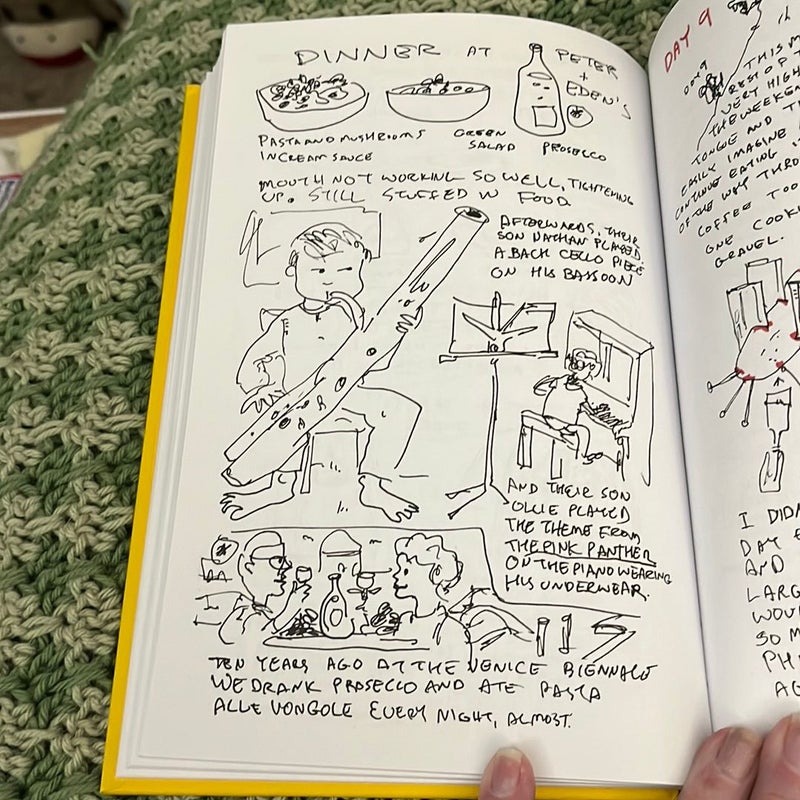 DINNER AT PETER + EDEN'S
PASTA AND MUSHROOMS
IN CREAM SAUCE
GREEN
SALAD
PROSECCO
MOUTH NOT WORKING SO WELL, TIGHTENING
UP. STILL STUFFED W FOOD
AFTERWARDS, THEIR
SON NATHAN PLAYED
A BACH CELLO PIECE
ON HIS BASSOON
AND THEIR SON
OLLIE PLAYED
THE THEME FROM
THE PINK PANTHER
ON THE PIANO WEARING
HIS UNDERWEAR.
TEN YEARS AGO AT THE VENICE BIENNALE
WE DRANK PROSECCO AND ATE PASTA
ALLE VONGOLE EVERY NIGHT, ALMOST.
DAY 9
DAY 9
THIS M
REST OF T
VERY HIGH
THE WEEKEN
TONGUE AND T
EASILY IMAGINE
CONTINUE EATING
OF THE WAY THRO
COFFEE TOO
ONE COOKI
GRAVEL.
I DIDN
DAY
AND
LARG
WOU
SO M
PH
AG